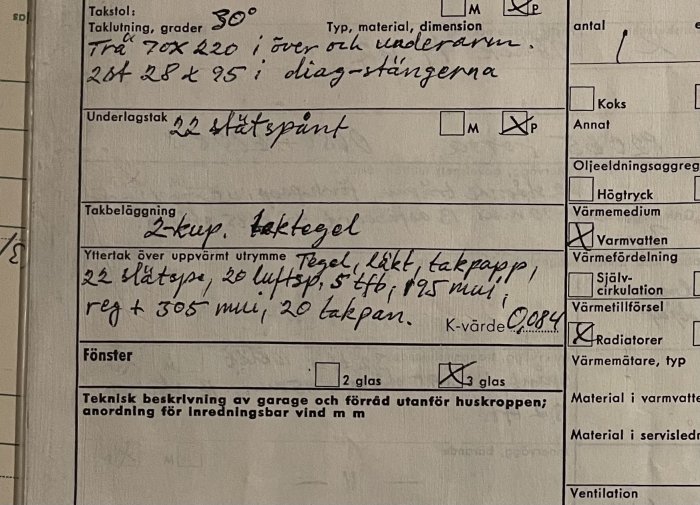 Takstol:
M
P
Taklutning, grader 30°
Typ, material, dimension
Trä 70x220 i över och underarm.
2st 28x95 i diag-stängerna
Underlagstak
22 slätspånt
M
P
Takbeläggning
2-kup. taktegel
Yttertak över uppvärmt utrymme Tegel, läkt, takpapp,
22 slätsp, 20 luftsp, 5 tfb, 195 mui,
reg + 305 mui, 20 takpan.
K-värde 0,084
Fönster
2 glas
3 glas
Teknisk beskrivning av garage och förråd utanför huskroppen;
anordning för inredningsbar vind m m
antal
1
Koks
Annat
Oljeeldningsaggreg
Högtryck
Värmemedium
Varmvatten
Värmefördelning
Själv-
cirkulation
Värmetillförsel
Radiatorer
Värmemätare, typ
Material i varmvatte
Material i servisledn
Ventilation